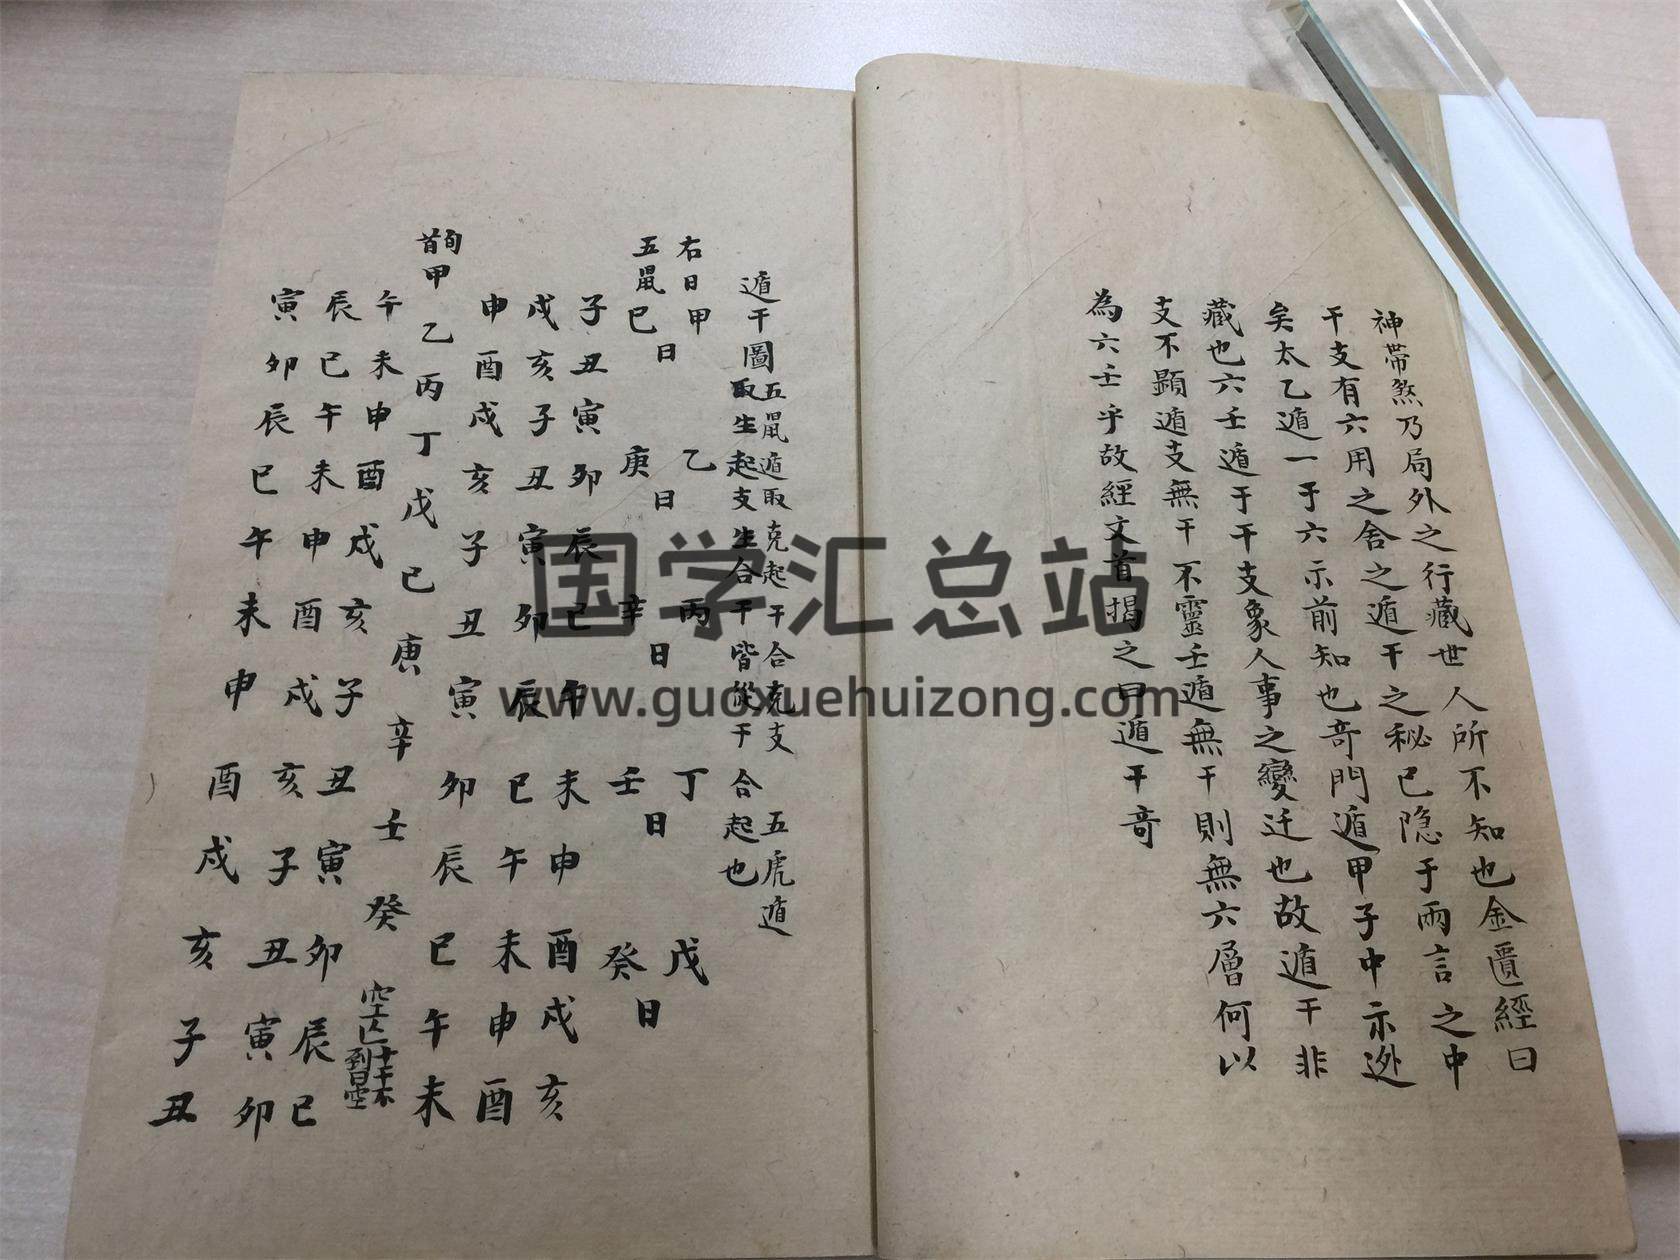 神帶煞乃局外之行藏世人所不知也金匱經曰
干支有六用之舍之遁干之秘已隐于兩言之中
矣太乙遁一于六示前知也奇門遁甲子中示迯
藏也六壬遁于干支象人事之變迁也故遁干非
支不顯遁支無干不靈壬遁無干則無六層何以
為六壬乎故經文首揭之曰遁干奇
遁干圖
五鼠遁取克起干合克支 五虎遁
取生起支生合干皆從干合起也
右日甲乙丙丁戊
日日日日日
五鼠巳庚辛壬癸
子丑寅卯辰巳午未申酉戌亥
戌亥子丑寅卯辰巳午未申酉
申酉戌亥子丑寅卯辰巳午未
旬首甲乙丙丁戊己庚辛壬癸空亡
十干不
到曰空
午未申酉戌亥子丑寅卯辰巳
辰巳午未申酉戌亥子丑寅卯
寅卯辰巳午未申酉戌亥子丑
国学汇总站
www.guoxuehuizong.com